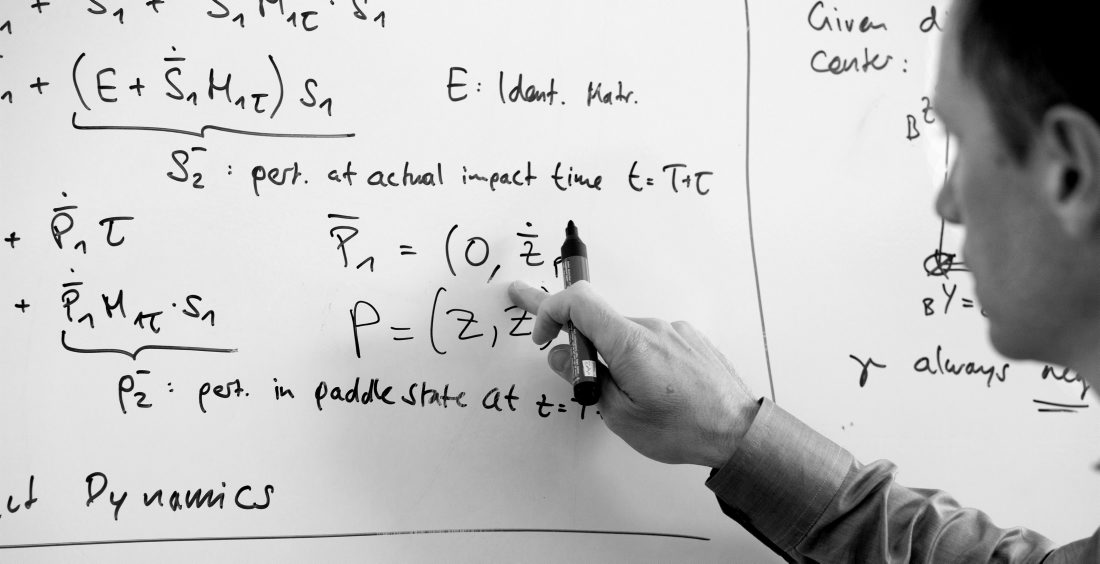 + (E + Ṡ̄₁ M₁τ) S₁
E: Ident. Matr.
S₂⁻ : pert. at actual impact time t = T+τ
+ Ṗ̄₁ τ
P̄₁ = (0, ż̄
+ Ṗ̄₁ M₁τ · S₁
P = (z, ż
p₂⁻ : pert. in paddle state at t =
Dynamics
Given
Center:
B
B Y =
γ always